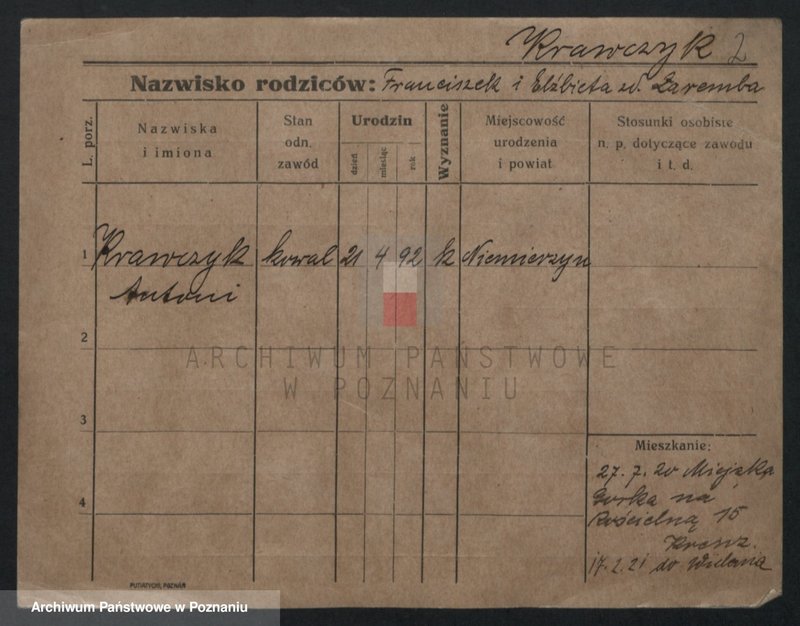 Krawczyk 2
Nazwisko rodziców: Franciszek i Elżbieta zd. Zaremba
L. porz.
Nazwiska
i imiona
Stan
odn.
zawód
Urodzin
dzień
miesiąc
rok
Wyznanie
Miejscowość
urodzenia
i powiat
Stosunki osobiste
n. p. dotyczące zawodu
i t. d.
1 Krawczyk kowal 21 4 92 k Niemierzyn
Antoni
2
ARCHIWUM PAŃSTWOWE
W POZNANIU
3
Mieszkanie:
27. 7. 20 Miejska
Gorka na
Kościelną 15
4
17. 2. 21 do
PUTIATYCKI, POZNAŃ
Archiwum Państwowe w Poznaniu